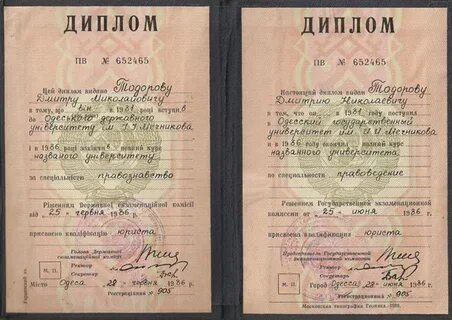 ДИПЛОМ
ПВ № 652465
Цей диплом видано Тодорову
Дмитру Миколайовичу
в тому, що він в 1981 році вступив в
Одеського державного
університету ім. І.І. Мечникова
і в 1986 році закінчив повний курс
названого університету
за спеціальністю правознавство
Рішенням Державної екзаменаційної комісії
від 25 червня 1986 р.
присвоєно кваліфікацію юриста
Голова Державної
екзаменаційної комісії
Ректор
Секретар
М. П.
Місто Одеса 28 червня 1986 р.
Реєстраційний № 905
ДИПЛОМ
ПВ № 652465
Настоящий диплом выдан Тодорову
Дмитрию Николаевичу
в том, что он в 1981 году поступил в
Одесский государственный
университет им. И.И. Мечникова
и в 1986 году окончил полный курс
названного университета
по специальности правоведение
Решением Государственной экзаменационной
комиссии от 25 июня 1986 г.
присвоена квалификация юриста
Председатель Государственной
экзаменационной комиссии
Ректор
Секретарь
М. П.
Город Одесса 28 июня 1986 г.
Регистрационный № 905
Московская типография Гознака. 1980.